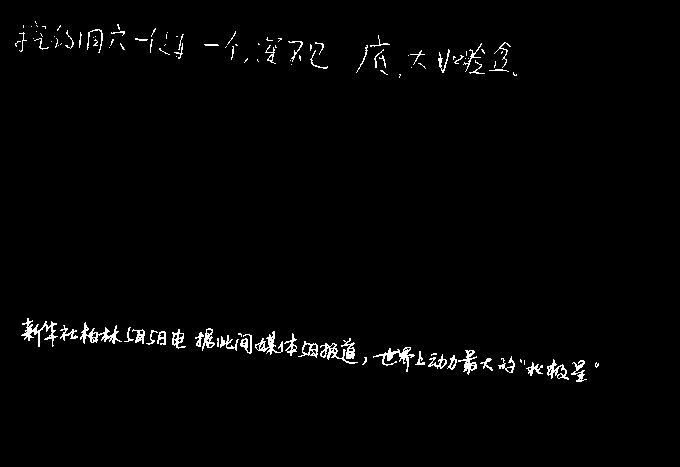 挖的洞穴一个连一个,深不见底,大收脸盒。
新华社柏林5月5日电 据此间媒体5日报道,世界上动力最大的"北极星"